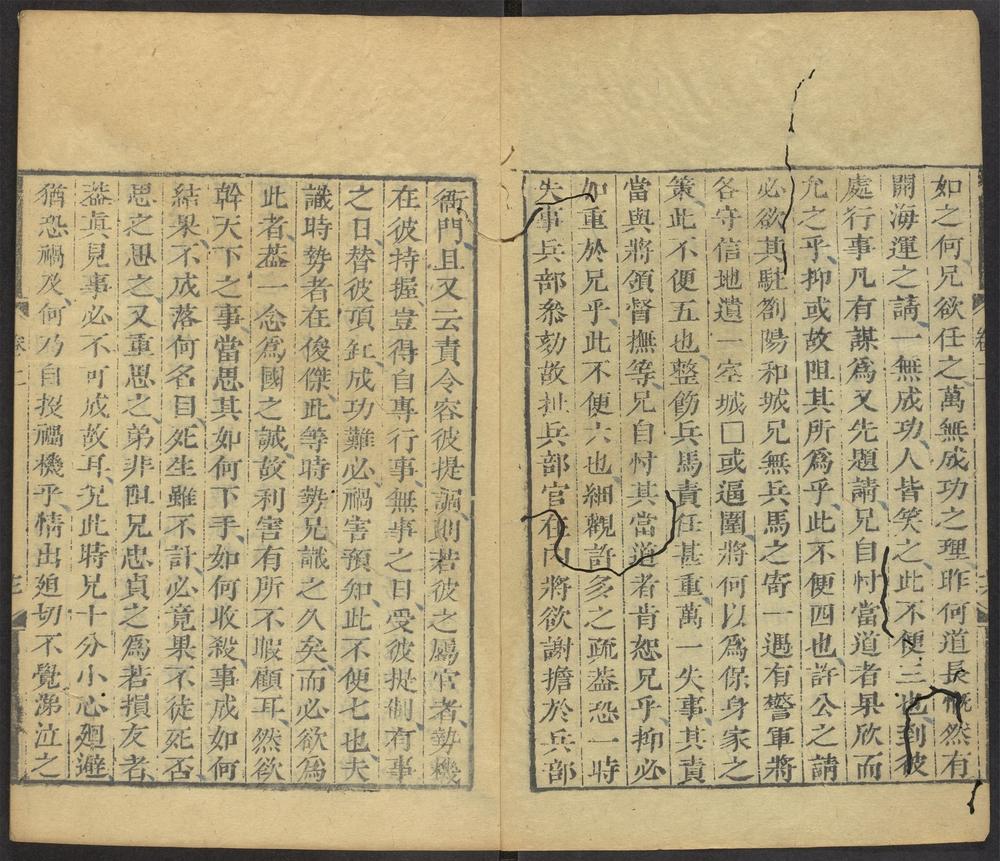 如之何兄欲任之萬無成功之理昨何道長慨然有
開海運之請一無成功人皆笑之此不便三也到彼
處行事凡有謀爲又先題請兄自忖當道者果欣而
允之乎抑或故阻其所爲乎此不便四也許公之請
必欲其駐劄陽和城兄無兵馬之寄一遇有警軍將
各守信地遺一空城□或逼圍將何以爲保身家之
策此不便五也整飭兵馬責任甚重萬一失事其責
當與將領督撫等兄自忖其當道者肯恕兄乎抑必
如重於兄乎此不便六也細觀許多之疏葢恐一時
失事兵部叅劾故扯兵部官在內將欲謝擔於兵部
衙門且又云責令容彼提調則若彼之屬官者勢機
在彼持握豈得自專行事無事之日受彼提制有事
之日替彼頂缸成功難必禍害預知此不便七也夫
識時勢者在俊傑此等時勢兄識之久矣而必欲爲
此者葢一念爲國之誠故利害有所不暇顧耳然欲
幹天下之事當思其如何下手如何收殺事成如何
結果不成落何名目死生雖不計必竟果不徒死否
思之思之又重思之弟非阻兄忠貞之爲若損友者
葢眞見事必不可成故耳况此時兄十分小心廻避
猶恐禍及何乃自投禍機乎情出廹切不覺涕泣之
卷二